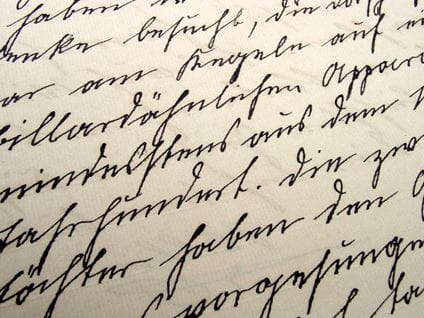 haben
enke besucht, die
ar am Kegeln auf ei
billardähnlichen Appara
mindestens aus dem
Jahrhundert. Die zw
töchter haben den
vorgesunge